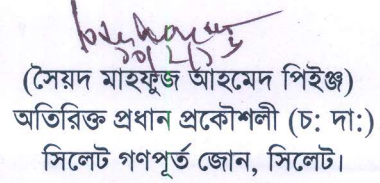 (সৈয়দ মাহফুজ আহমেদ পিইঞ্জ)
অতিরিক্ত প্রধান প্রকৌশলী (চ: দা:)
সিলেট গণপূর্ত জোন, সিলেট।